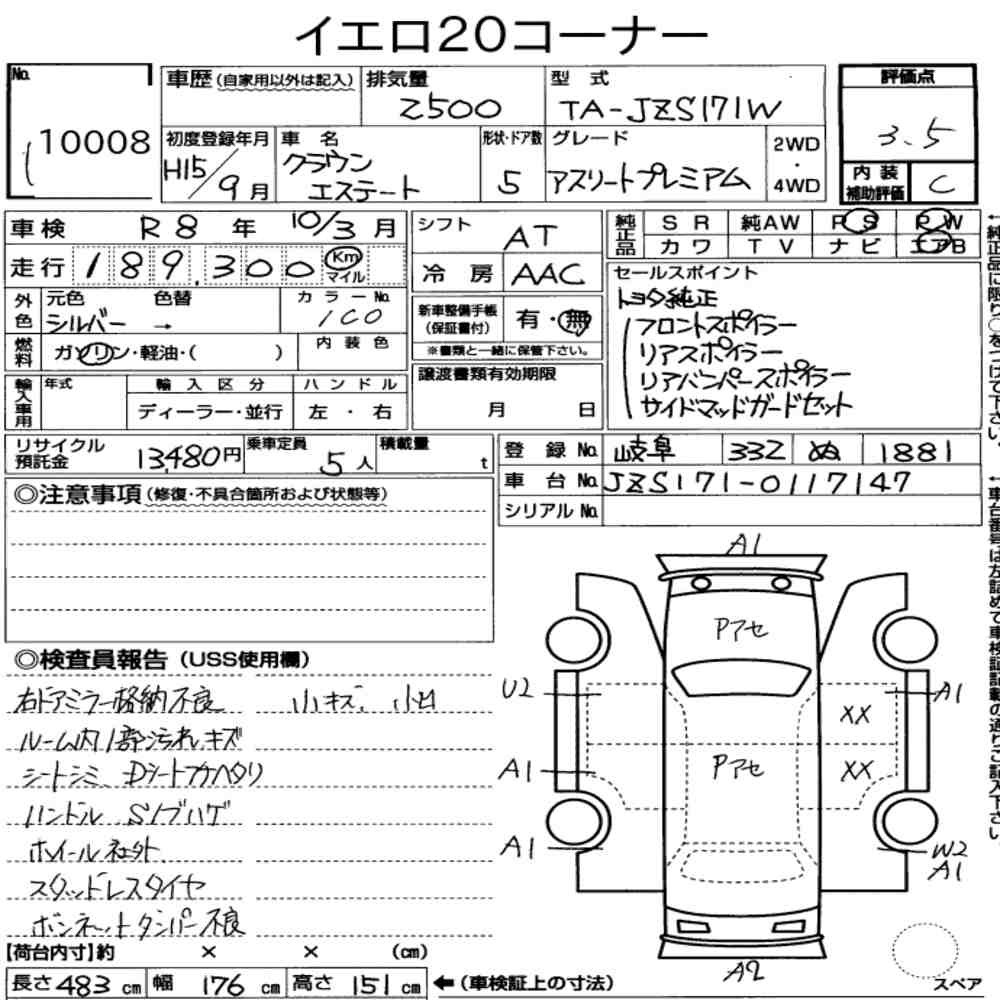 イエロ20コーナー
No. 10008
車歴(自家用以外は記入)
排気量 2500
型式 TA-JZS171W
評価点 3.5
初度登録年月 H15/9月
車名 クラウン エステート
形状・ドア数 5
グレード アスリートプレミアム
2WD・4WD
内装補助評価 C
車検 R8年 10/3月
シフト AT
純正品 SR 純AW PS PW
カワ TV ナビ エアB
走行 189,300 Km マイル
冷房 AAC
セールスポイント
トヨタ純正
フロントスポイラー
リアスポイラー
リアバンパースポイラー
サイドマッドガードセット
外色 元色 シルバー → 色替
カラーNo. 1C0
新車整備手帳(保証書付) 有・無
※書類と一緒に保管下さい。
燃料 ガソリン・軽油・( )
内装色
譲渡書類有効期限
月 日
輸入車用 年式 輸入区分 ハンドル
ディーラー・並行 左・右
リサイクル預託金 13,480円
乗車定員 5人
積載量 t
登録No. 岐阜 332 ぬ 1881
車台No. JZS171-0117147
シリアルNo.
◎注意事項(修復・不具合箇所および状態等)
◎検査員報告(USS使用欄)
右ドアミラー格納不良 小キズ、小凹
ルーム内1部汚れ、キズ
シートシミ、Dシートフカヘタリ
ハンドル、S/ブハゲ
ホイール社外
スタッドレスタイヤ
ボンネットダンパー不良
A1
Pアセ
U2
A1
XX
A1
Pアセ
XX
A1
W2
A1
A2
スペア
【荷台内寸】約 × × (cm)
長さ 483 cm 幅 176 cm 高さ 151 cm ←(車検証上の寸法)